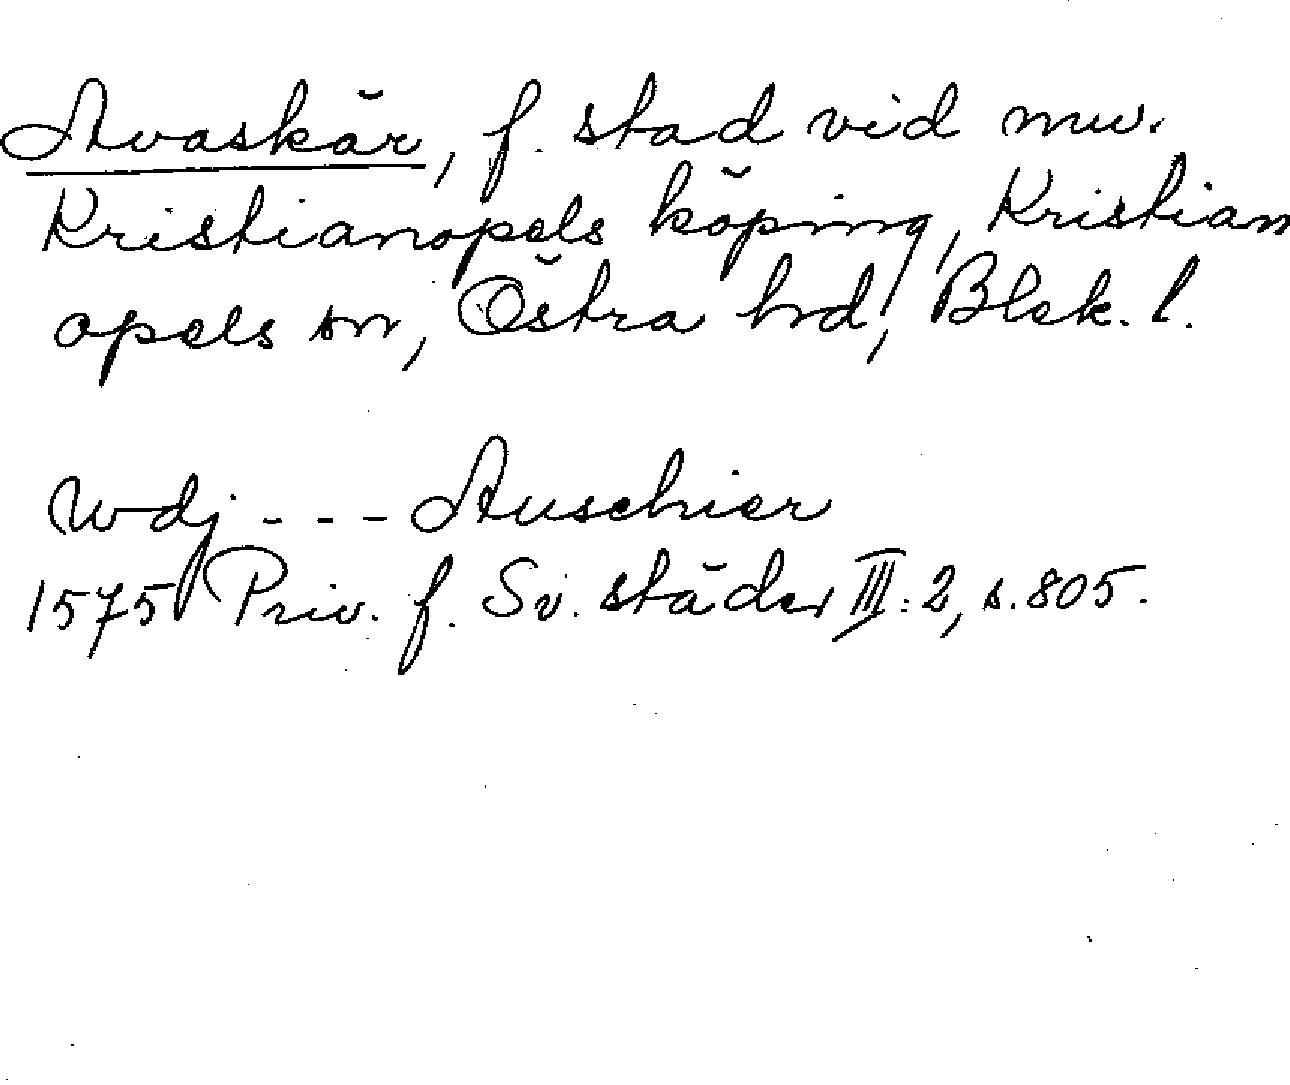 Avaskär, f. stad vid nuv.
Kristianopels köping, Kristian
opels sn, Östra hd, Blek. l.
wdj - - - Auschier
1575 Priv. f. Sv. städer III: 2, s. 805.